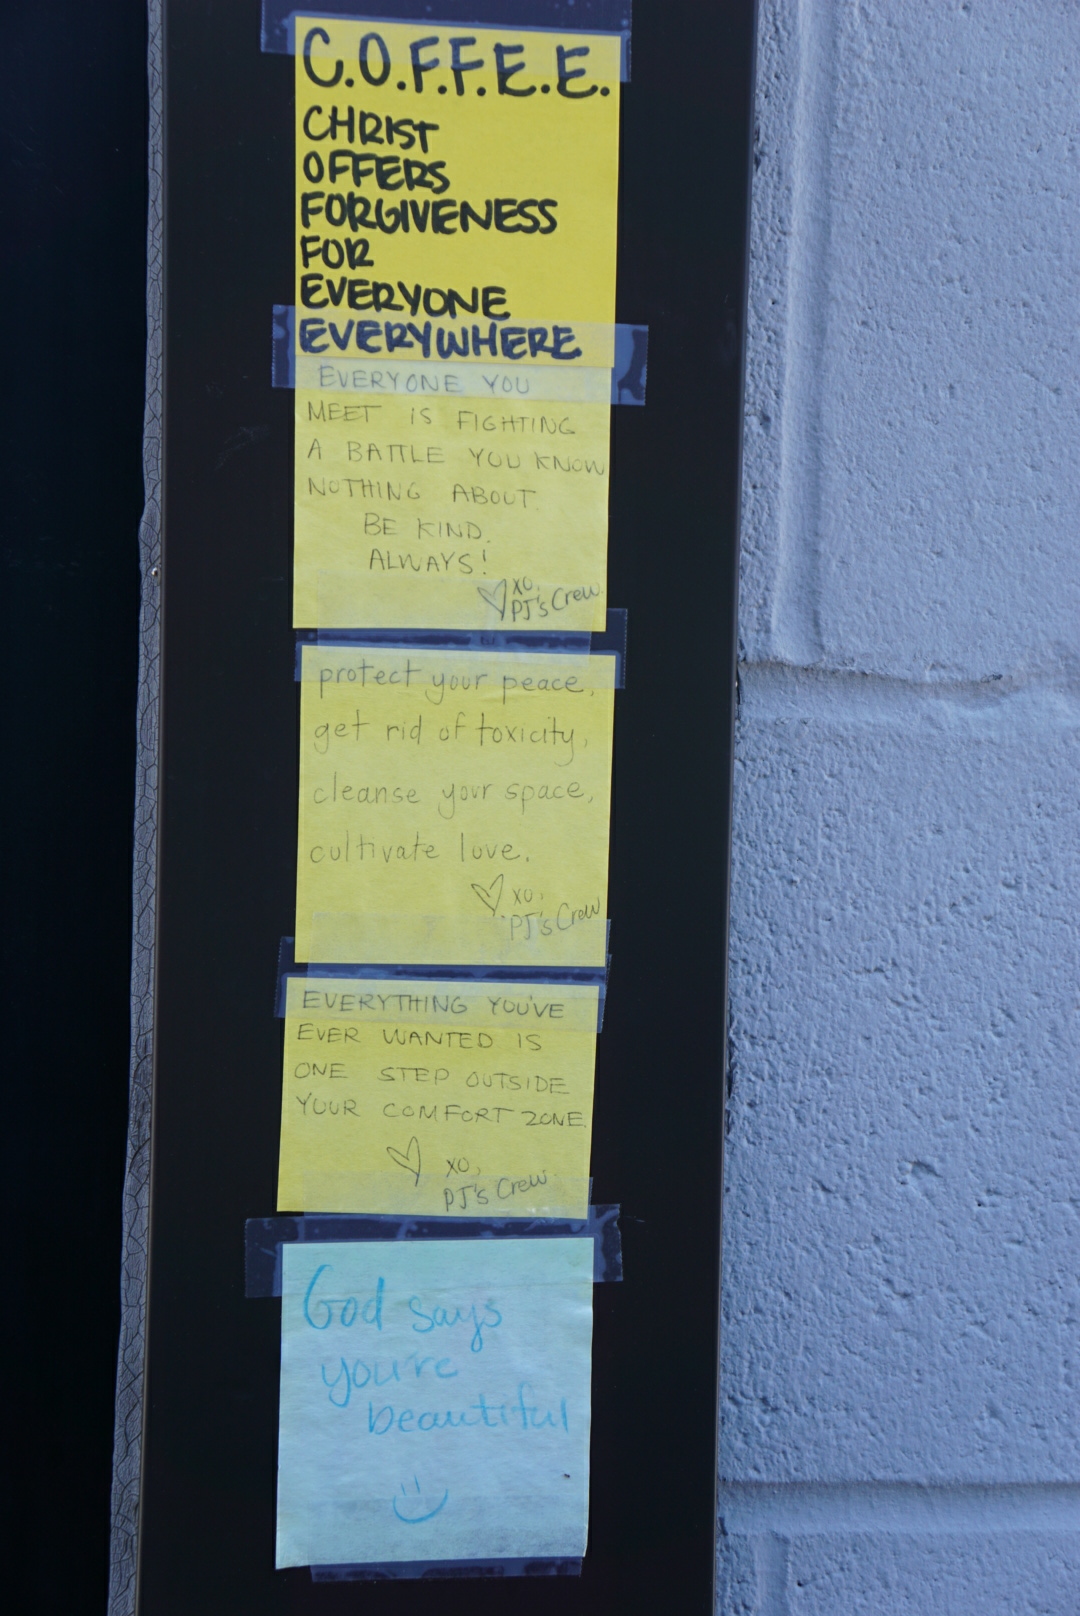 C.O.F.F.E.E.
CHRIST
OFFERS
FORGIVENESS
FOR
EVERYONE
EVERYWHERE
EVERYONE YOU
MEET IS FIGHTING
A BATTLE YOU KNOW
NOTHING ABOUT.
BE KIND.
ALWAYS!
♡ XO,
PJ's Crew
protect your peace,
get rid of toxicity,
cleanse your space,
cultivate love.
♡ XO,
PJ's Crew
EVERYTHING YOU'VE
EVER WANTED IS
ONE STEP OUTSIDE
YOUR COMFORT ZONE.
♡ XO,
PJ's Crew
God says
you're
beautiful